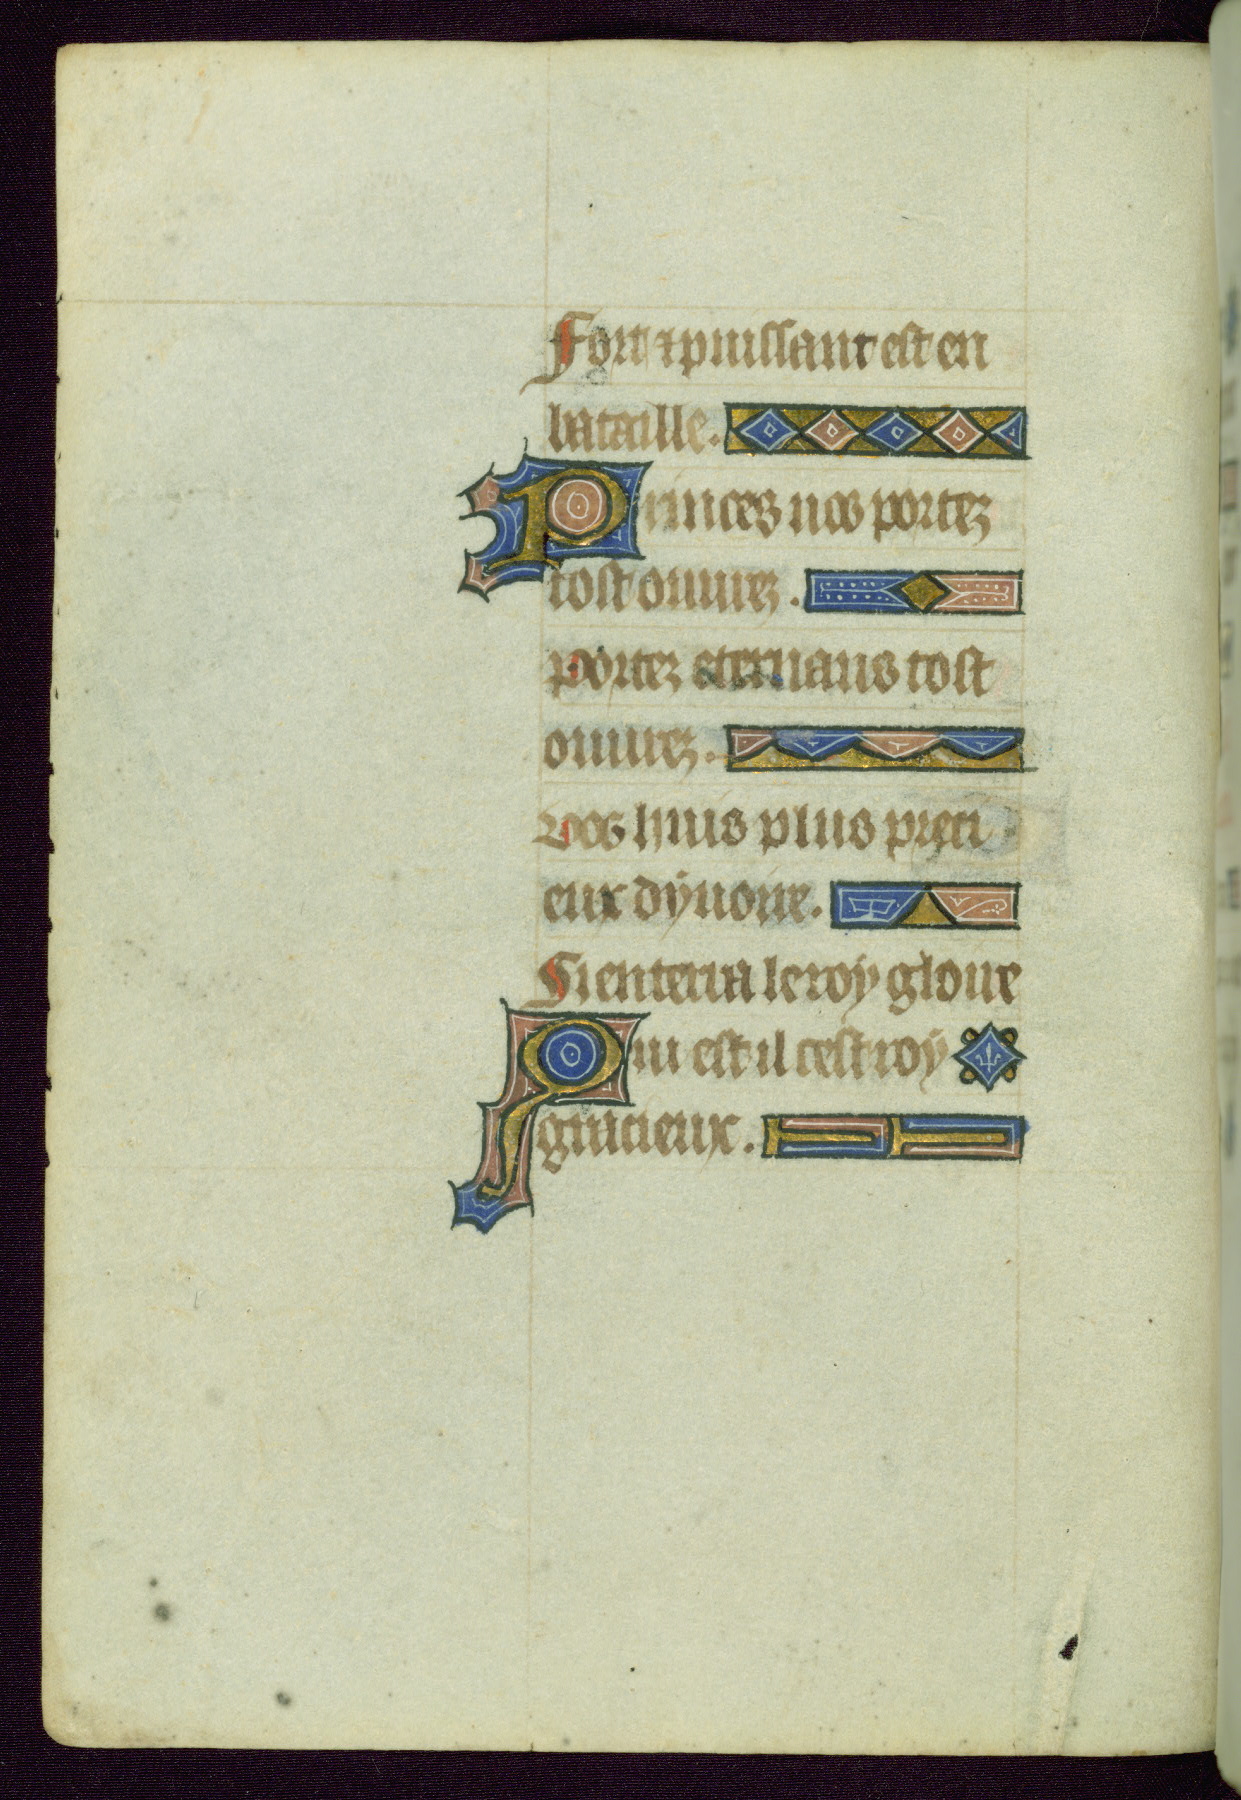 Fort ⁊ puissant est en
bataille.
Princes uos portez
tost ouurez.
portez eternaus tost
ouurez.
Vos huis plus preci
eux dyuoire.
Si enterra le roy gloire
Qui est il cest roy
gracieux.